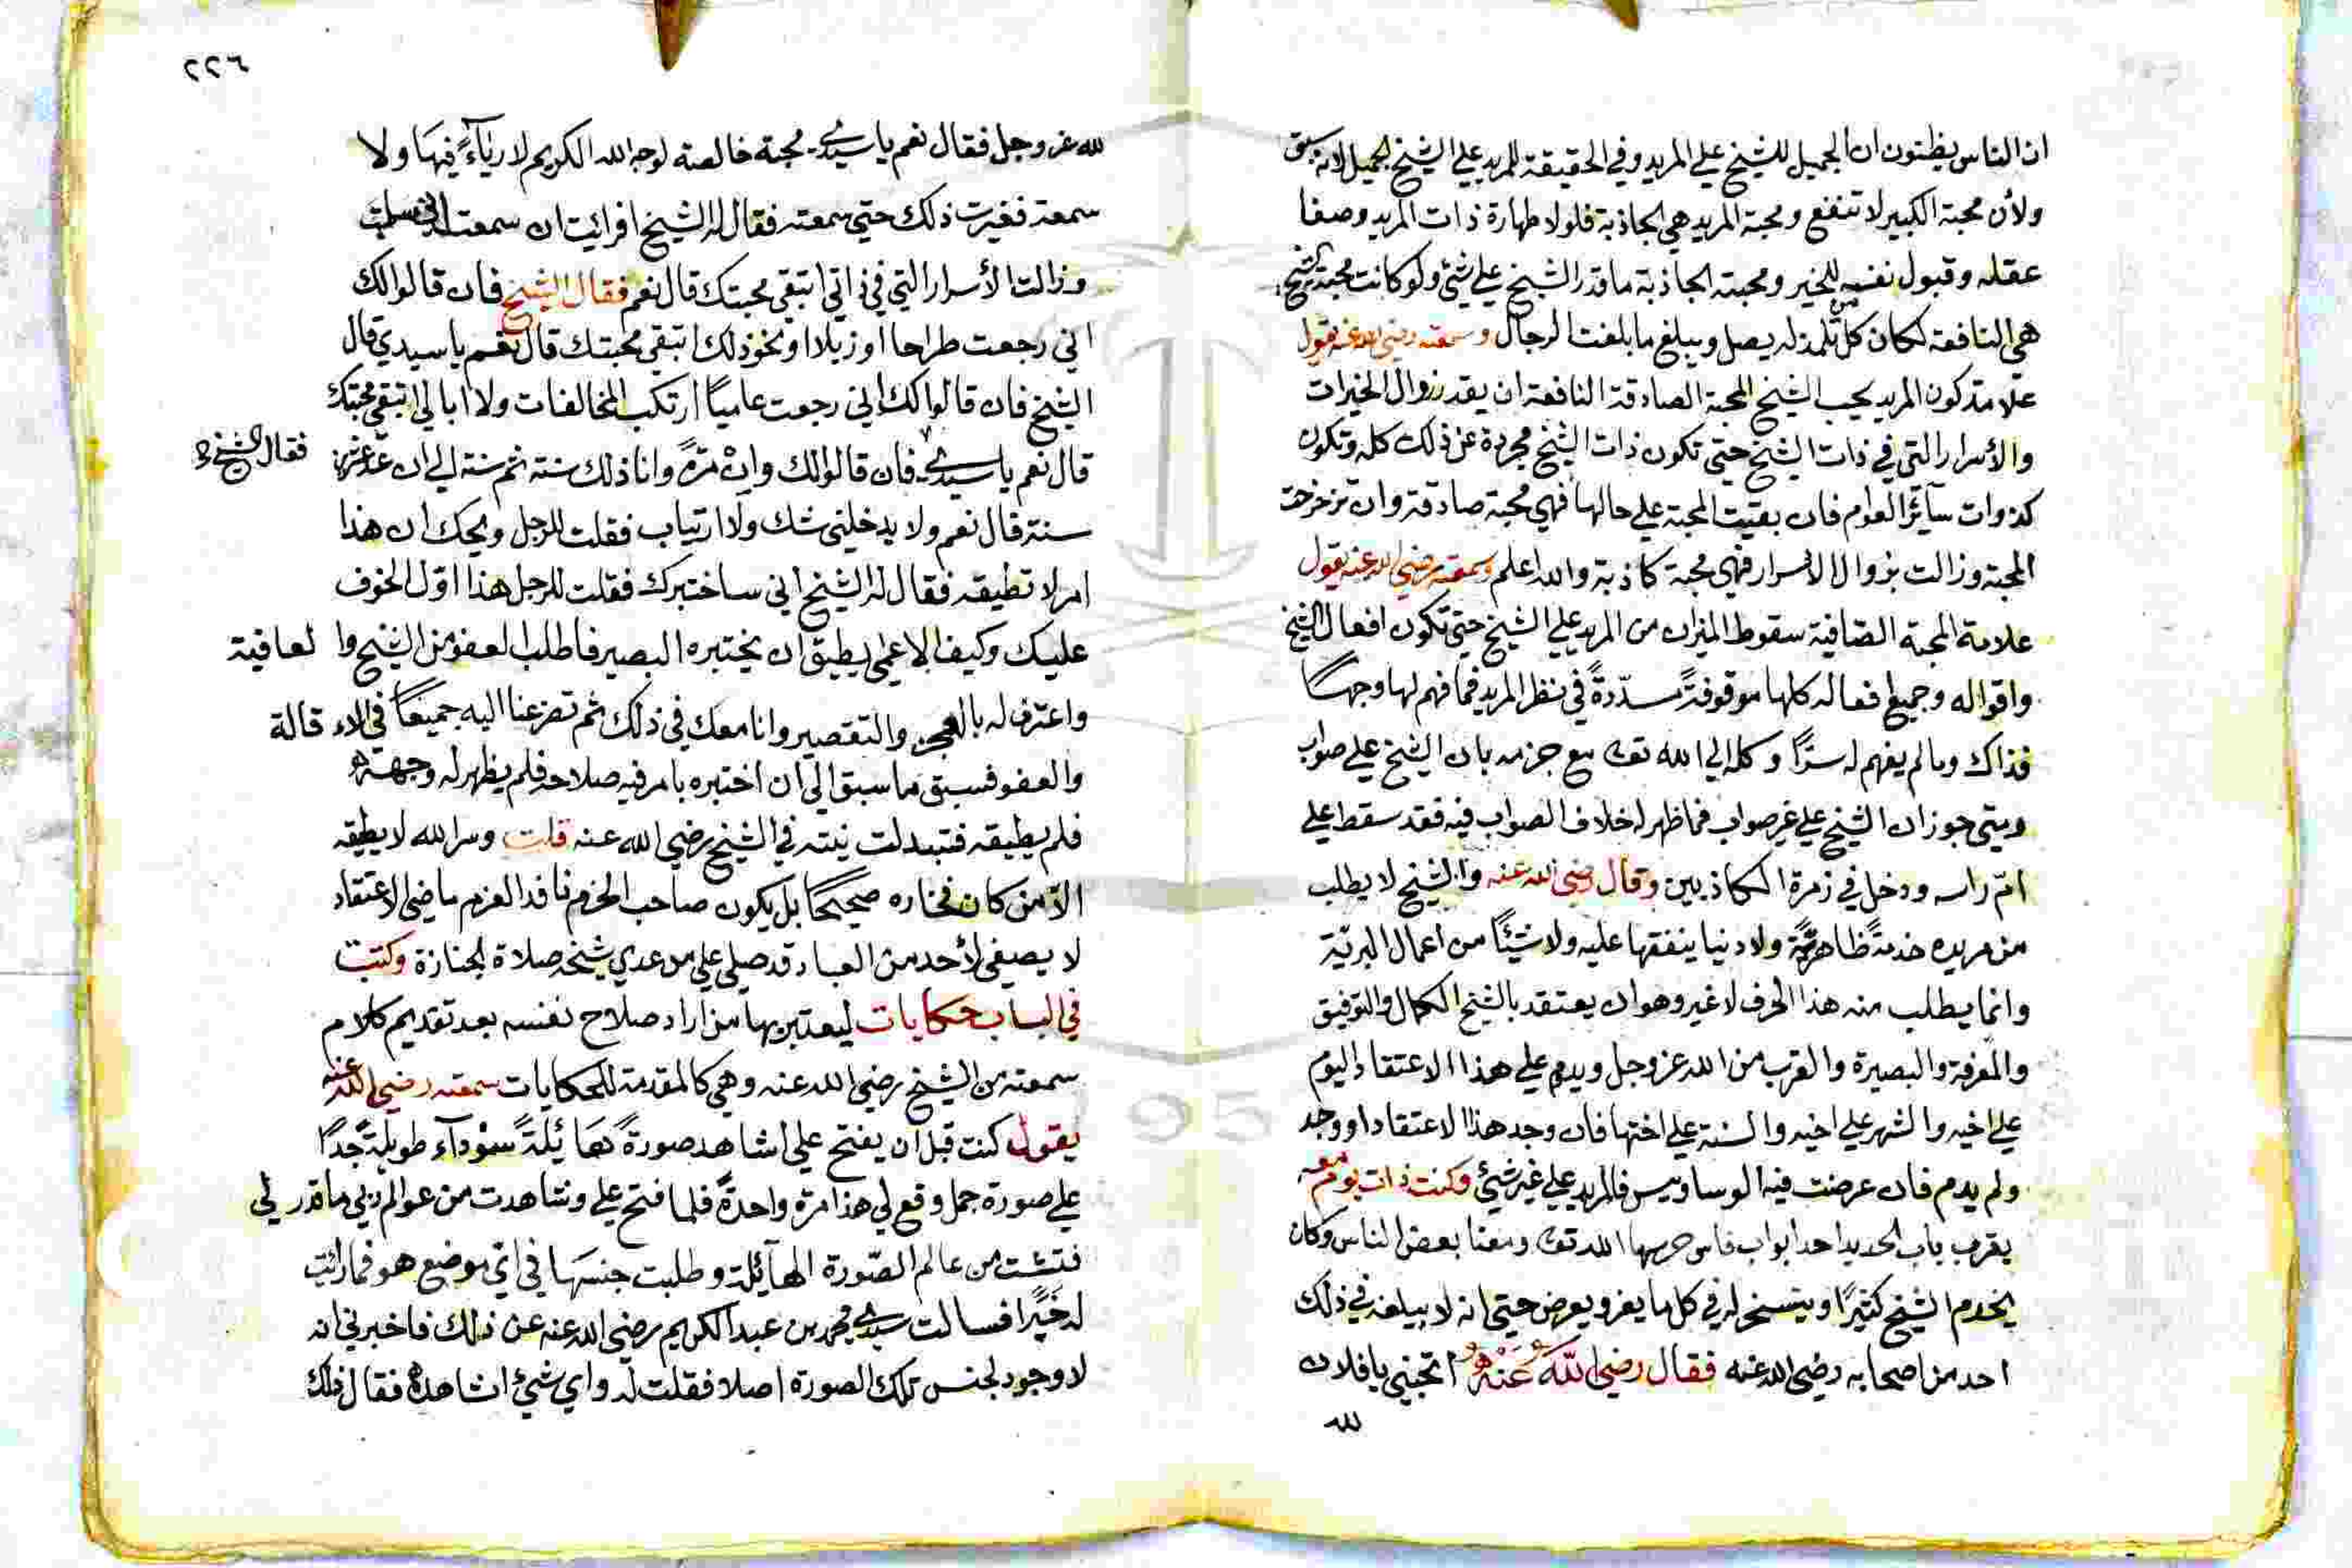 ان الناس يظنون ان الجميل للشيخ علي المريد وفي الحقيقة للمريد علي الشيخ الجميل لانه سبق
ولأن محبة الكبير لا تنفع ومحبة المريد هي الجاذبة فلولا طهارة ذات المريد وصفا
عقله وقبول نفسه للخير ومحبته الجاذبة ما قدر الشيخ علي شئ ولو كانت محبة الشيخ
هي النافعة لكان كل من تلمذ له يصل ويبلغ ما بلغت الرجال وسمعته رضي الله عنه يقول
علامة كون المريد يحب الشيخ المحبة الصادقة النافعة ان يقدر زوال الخيرات
والأسرار التي في ذات الشيخ حتي تكون ذات الشيخ مجردة عن ذلك كله وتكون
كذوات سآئر العوام فان بقيت المحبة علي حالها فهي محبة صادقة وان تزحزحت
المحبة وزالت بزوال الاسرار فهي محبة كاذبة والله اعلم وسمعته رضي الله عنه يقول
علامة المحبة الصّافية سقوط الميزان من المريد علي الشيخ حتي تكون افعال الشيخ
واقواله وجميع افعاله كلها موقوفةً مسدّدةً في نظر المريد فما فهم لها وجهًا
فذاك وما لم يفهم له سرًّا وكله الي الله تعالى مع جزمه بان الشيخ علي صواب
ومتي جوز ان الشيخ علي غير صواب فما ظهر له خلاف الصواب فيه فقد سقط علي
امّ راسه ودخل في زمرة الكاذبين وقال رضي الله عنه والشيخ لا يطلب
من مريده خدمةً ظاهرةً ولا دنيا ينفقها عليه ولا شيئًا من اعمال البرنيّة
وانما يطلب منه هذا الحرف لا غير وهو ان يعتقد بالشيخ الكمال والتوفيق
والمعرفة والبصيرة والقرب من الله عز وجل ويدوم علي هذا الاعتقاد اليوم
علي اخيه والشهر علي اخيه والسنة علي اختها فان وجد هذا الاعتقاد او وجد
ولم يدم فان عرضت فيه الوساويس فالمريد علي غير شئ وكنت ذات يوم معه
بقرب باب الحديد احد ابواب فاس حرسها الله تعالى ومعنا بعض الناس وكان
يخدم الشيخ كثيرًا ويتسخر له في كل ما يعز ويعرض حتي انه لا يبلغه في ذلك
احد من اصحابه رضي الله عنه فقال رضي اللهُ عَنْهُ اتحبني يا فلان
لله
٢٢٦
لله عز وجل فقال نعم يا سيدي محبة خالصة لوجه الله الكريم لا ريآءً فيها ولا
سمعة فغيرت ذلك حتي سمعته فقال له الشيخ افرائيت ان سمعت اني سلبت
وزالت الأسرار التي في ذاتي اتبقي محبتك قال نعم فقال الشيخ فان قالوا لك
اني رجعت طراحا او زبلا او نحو ذلك اتبقي محبتك قال نعم يا سيدي قال
الشيخ فان قالوا لك اني رجعت عاميًا ارتكب المخالفات ولا ابالي اتبقي محبتك
قال نعم يا سيدي فان قالوا لك وان مرّةً وانا ذلك سنة ثم سنة الي ان عدّ عشرين
فقال الشيخ
سنة قال نعم ولا يدخلني شك ولا ارتياب فقلت للرجل ويحك ان هذا
امر لا تطيقه فقال له الشيخ اني ساختبرك فقلت للرجل هذا اوّل الخوف
عليك وكيف الاعمي يطيق ان يختبره البصير فاطلب العفو من الشيخ والعافية
واعترف له بالعجز والتقصير وانا معك في ذلك ثم تضرعنا اليه جميعًا في الاءقالة
والعفو فسبق ما سبق الي ان اختبره بامر فيه صلاحه فلم يظهر له وجهه
فلم يطيقه فتبدلت نيته في الشيخ رضي الله عنه قلت وسر الله لا يطيقه
الاّ من كان فخاره صحيحًا بل يكون صاحب الحزم نافد العزم ماضي الاعتقاد
لا يصغي لأحد من العباد قد صلي علي من عدي شيخه صلاة الجنازة وكتبت
في الباب حكايات ليعتبر بها من اراد صلاح نفسه بعد تقديم كلام
سمعته من الشيخ رضي الله عنه وهي كالمقدمة للحكايات سمعته رضي الله عنه
يقول كنت قبل ان يفتح علي اشاهد صورةً هائلةً سوْدآء طويلةً جدًا
علي صورة جمل وقع لي هذا مرة واحدةً فلما فتح علي وشاهدت من عوالم ربي ما قدر لي
فتشت من عالم الصّورة الهآئلة وطلبت جنسها في اي موضع هو فما رائت
له خبرًا فسالت سيدي محمد بن عبد الكريم رضي الله عنه عن ذلك فاخبرني انه
لا وجود لجنس تلك الصورة اصلا فقلت له واي شئ اشاهده فقال ذلك